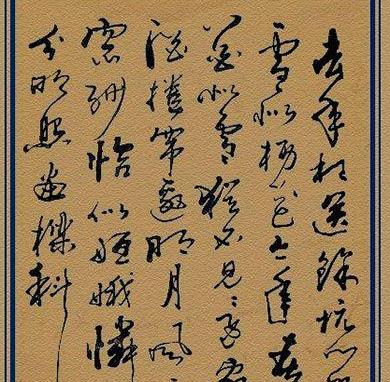 去年相送餘杭门外
雪似楊花今年春
花似雪猶不見還家
酒捲簾邀明月風
窓紗恰似姮娥憐
分明照畫樑斜